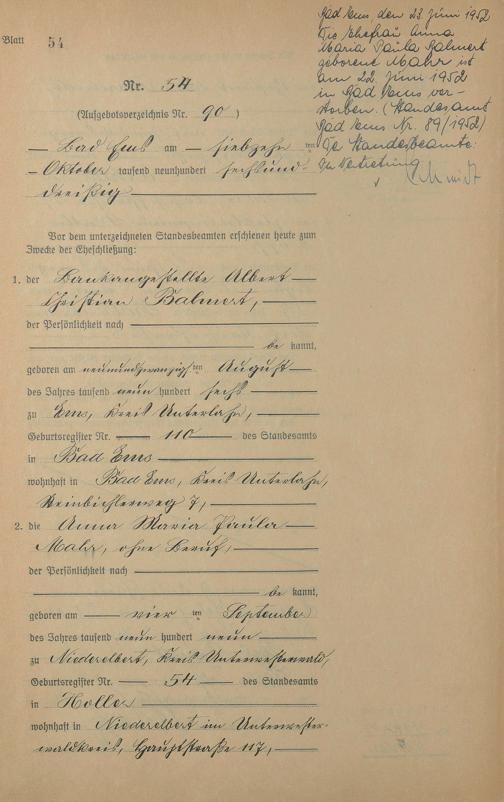 Blatt 54
Bad Ems, den 23. Juni 1952
Die Ehefrau Anna
Maria Paula Balmert
geborene Mahr ist
am 22. Juni 1952
in Bad Ems ver-
storben. (Standesamt
Bad Ems Nr. 89/1952)
Der Standesbeamte:
In Vertretung
Schmidt
Nr. 54
(Aufgebotsverzeichnis Nr. 90)
Bad Ems am siebzehn ten
Oktober tausend neunhundert sechsund-
dreißig
Vor dem unterzeichneten Standesbeamten erschienen heute zum
Zwecke der Eheschließung:
1. der Bankangestellte Albert
Christian Balmert,
der Persönlichkeit nach
be kannt,
geboren am neunundzwanzigsten August
des Jahres tausend neun hundert sechs
zu Ems, Kreis Unterlahn,
Geburtsregister Nr. 110 des Standesamts
in Bad Ems
wohnhaft in Bad Ems, Kreis Unterlahn,
7,
2. die Anna Maria Paula
Mahr, ohne Beruf,
der Persönlichkeit nach
be kannt,
geboren am vier ten September
des Jahres tausend neun hundert neun
zu Niederelbert, Kreis Unterwesterwald,
Geburtsregister Nr. 54 des Standesamts
in Holler
wohnhaft in Niederelbert im Unterwester-
waldkreis, Hauptstraße 117,